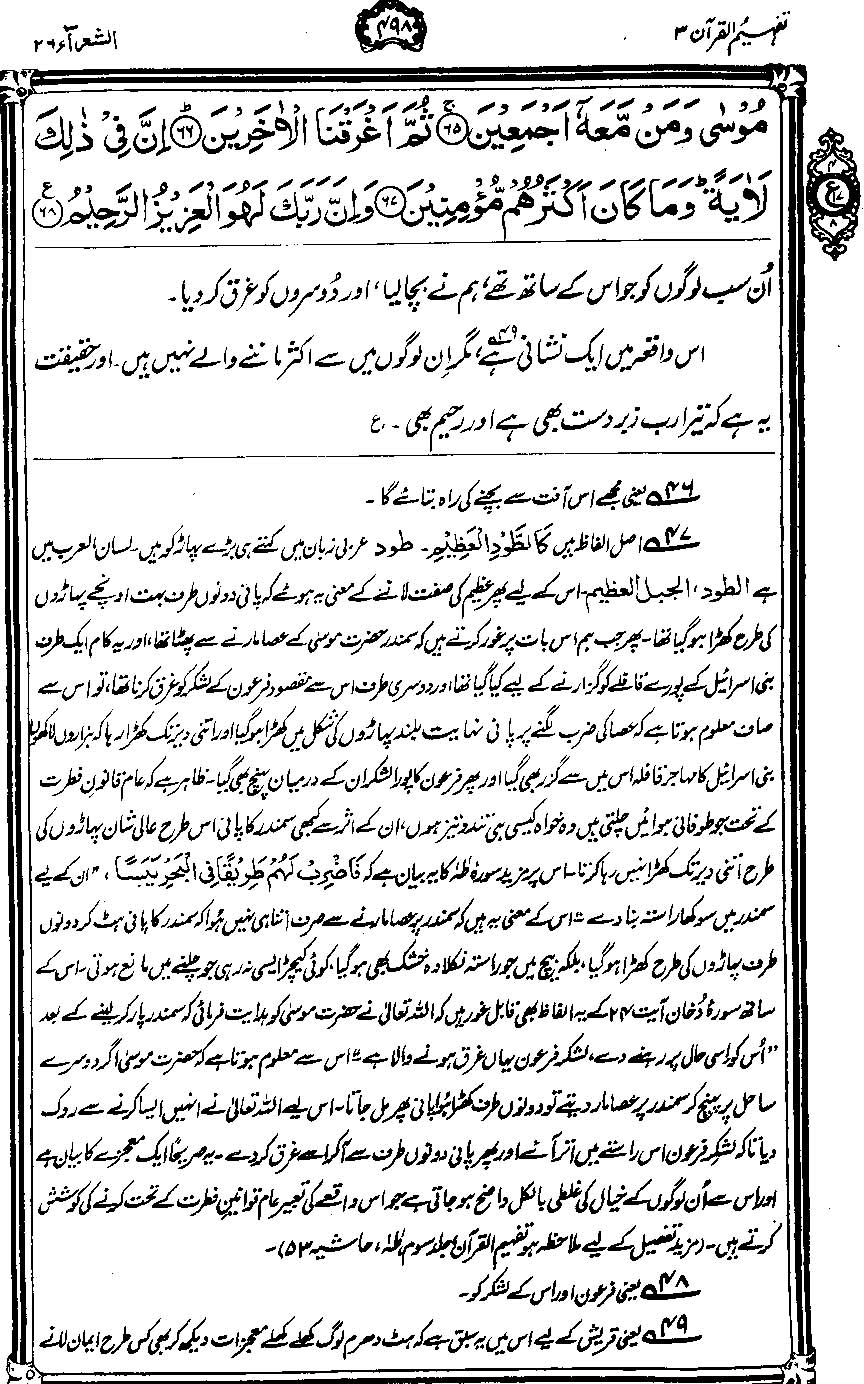 تفہیم القرآن ۳
۴۹۸
الشعرآء ۲۶
مُوْسٰى وَمَنْ مَّعَهٗٓ اَجْمَعِيْنَ ﴿۶۵﴾ ثُمَّ اَغْرَقْنَا الْاٰخَرِيْنَ ﴿۶۶﴾ اِنَّ فِيْ ذٰلِكَ
لَاٰيَةً ؕ وَمَا كَانَ اَكْثَرُهُمْ مُّؤْمِنِيْنَ ﴿۶۷﴾ وَاِنَّ رَبَّكَ لَهُوَ الْعَزِيْزُ الرَّحِيْمُ ﴿۶۸﴾ ع
اُن سب لوگوں کو جو اس کے ساتھ تھے، ہم نے بچا لیا، اور دُوسروں کو غرق کر دیا۔
اس واقعہ میں ایک نشانی ہے،۴۹ مگر اِن لوگوں میں سے اکثر ماننے والے نہیں ہیں۔ اور حقیقت
یہ ہے کہ تیرا رب زبردست بھی ہے اور رحیم بھی۔ ع
۴۶ یعنی مجھے اس آفت سے بچنے کی راہ بتائے گا۔
۴۷ اصل الفاظ ہیں كَالطَّوْدِ الْعَظِيْمِ۔ طود عربی زبان میں کہتے ہی بڑے پہاڑ کو ہیں۔ لسان العرب میں
ہے الطود، الجبل العظیم۔ اس کے لیے پھر عظیم کی صفت لانے کے معنی یہ ہوئے کہ پانی دونوں طرف بہت اونچے پہاڑوں
کی طرح کھڑا ہو گیا تھا۔ پھر جب ہم اس بات پر غور کرتے ہیں کہ سمندر حضرت موسیٰ کے عصا مارنے سے پھٹا تھا، اور یہ کام ایک طرف
بنی اسرائیل کے پورے قافلے کو گزارنے کے لیے کیا گیا تھا اور دوسری طرف اس سے مقصود فرعون کے لشکر کو غرق کرنا تھا، تو اس سے
صاف معلوم ہوتا ہے کہ عصا کی ضرب لگنے پر پانی نہایت بلند پہاڑوں کی شکل میں کھڑا ہو گیا اور اتنی دیر تک کھڑا رہا کہ ہزاروں لاکھوں
بنی اسرائیل کا مہاجر قافلہ اس میں سے گزر بھی گیا اور پھر فرعون کا پورا لشکر ان کے درمیان پہنچ بھی گیا۔ ظاہر ہے کہ عام قانونِ فطرت
کے تحت جو طوفانی ہوائیں چلتی ہیں وہ خواہ کیسی ہی تند و تیز ہوں، ان کے اثر سے کبھی سمندر کا پانی اس طرح عالی شان پہاڑوں کی
طرح اتنی دیر تک کھڑا نہیں رہا کرتا۔ اس پر مزید سورۂ طٰہٰ کا یہ بیان ہے کہ فَاضْرِبْ لَهُمْ طَرِيْقًا فِي الْبَحْرِ يَبَسًا، "ان کے لیے
سمندر میں سوکھا راستہ بنا دے" اس کے معنی یہ ہیں کہ سمندر پر عصا مارنے سے صرف اتنا ہی نہیں ہوا کہ سمندر کا پانی ہٹ کر دونوں
طرف پہاڑوں کی طرح کھڑا ہو گیا، بلکہ بیچ میں جو راستہ نکلا وہ خشک بھی ہو گیا، کوئی کیچڑ ایسی نہ رہی جو چلنے میں مانع ہوتی۔ اس کے
ساتھ سورۂ دُخان آیت ۲۴ کے یہ الفاظ بھی قابلِ غور ہیں کہ اللہ تعالیٰ نے حضرت موسیٰ کو ہدایت فرمائی کہ سمندر پار کر لینے کے بعد
"اُس کو اِسی حال پر رہنے دے، لشکرِ فرعون یہاں غرق ہونے والا ہے" اس سے معلوم ہوتا ہے کہ حضرت موسیٰ اگر دوسرے
ساحل پر پہنچ کر سمندر پر عصا مار دیتے تو دونوں طرف کھڑا ہوا پانی پھر مل جاتا۔ اس لیے اللہ تعالیٰ نے انہیں ایسا کرنے سے روک
دیا تاکہ لشکرِ فرعون اس راستے میں اتر آئے اور پھر پانی دونوں طرف سے آ کر اسے غرق کر دے۔ یہ صریحًا ایک معجزے کا بیان ہے
اور اس سے اُن لوگوں کے خیال کی غلطی بالکل واضح ہو جاتی ہے جو اس واقعے کی تعبیر عام قوانینِ فطرت کے تحت کرنے کی کوشش
کرتے ہیں۔ (مزید تفصیل کے لیے ملاحظہ ہو تفہیم القرآن جلد سوم، طٰہٰ، حاشیہ ۵۳)۔
۴۸ یعنی فرعون اور اس کے لشکر کو۔
۴۹ یعنی قریش کے لیے اس میں یہ سبق ہے کہ ہٹ دھرم لوگ کھلے کھلے معجزات دیکھ کر بھی کس طرح ایمان لانے